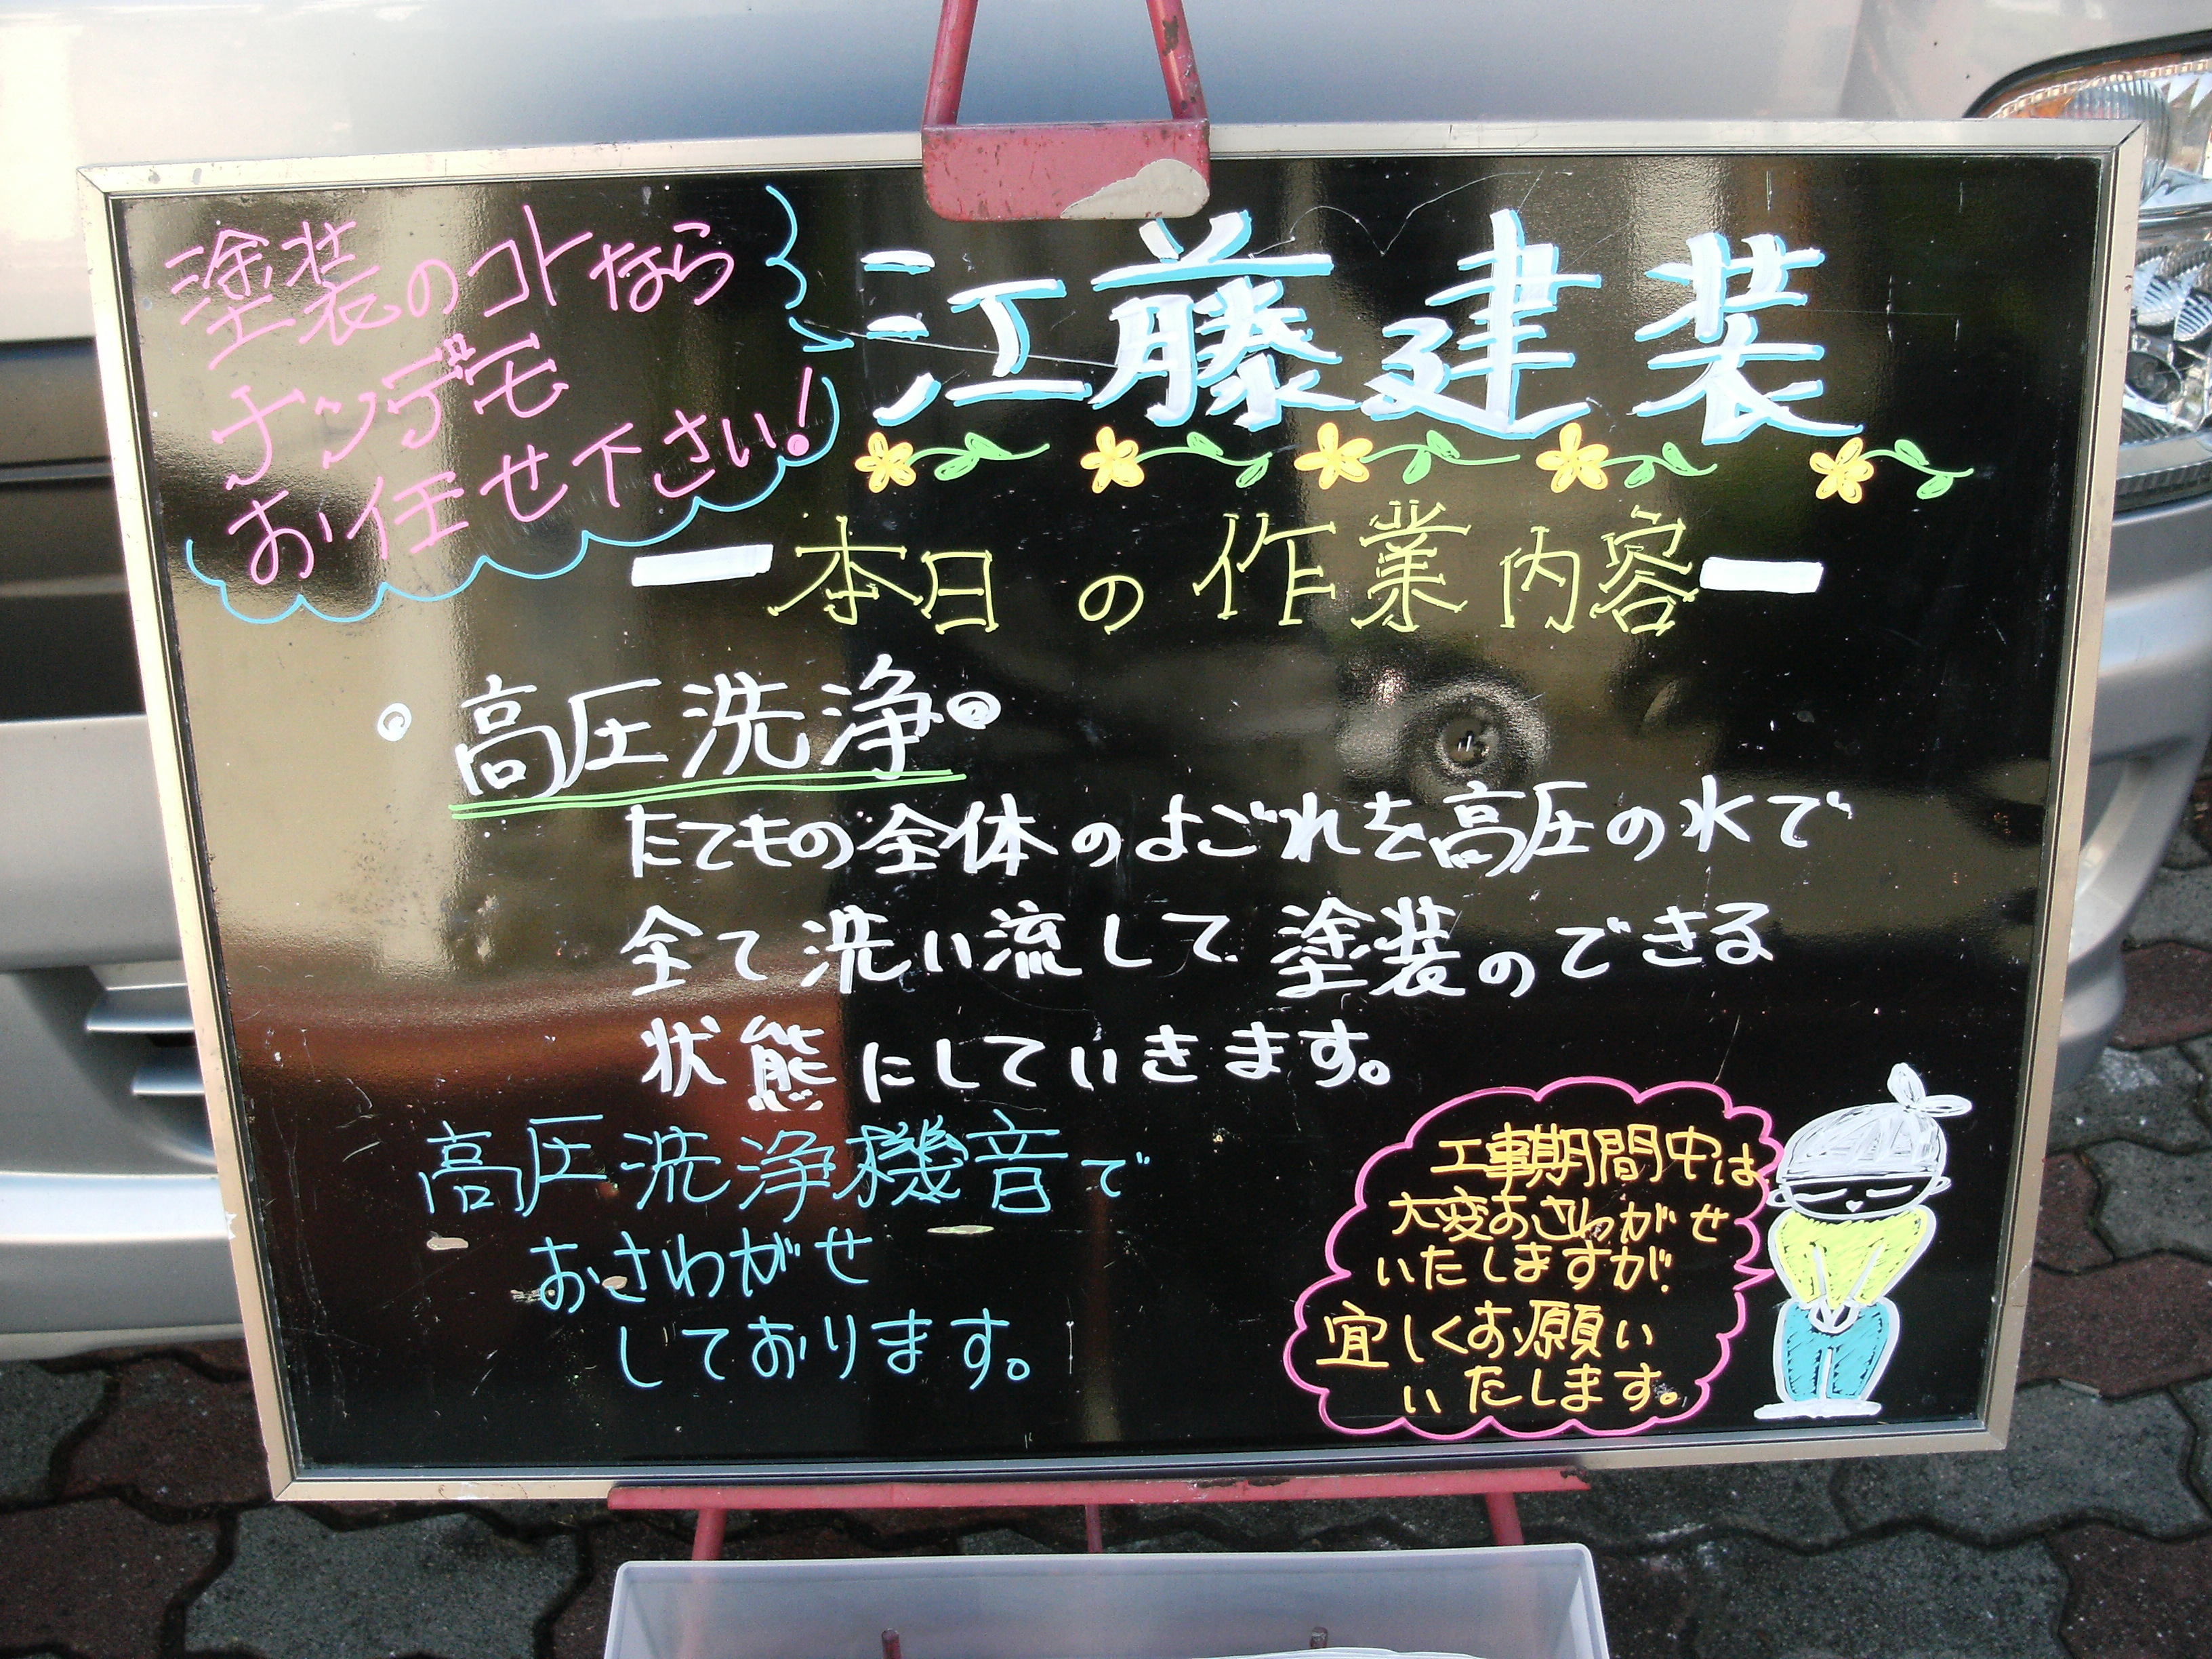 塗装のコトなら
ナンデモ
お任せ下さい!
江藤建装
ー本日の作業内容ー
◎高圧洗浄◎
たてもの全体のよごれを高圧の水で
全て洗い流して塗装のできる
状態にしていきます。
高圧洗浄機音で
おさわがせ
しております。
工事期間中は
大変おさわがせ
いたしますが
宜しくお願い
いたします。